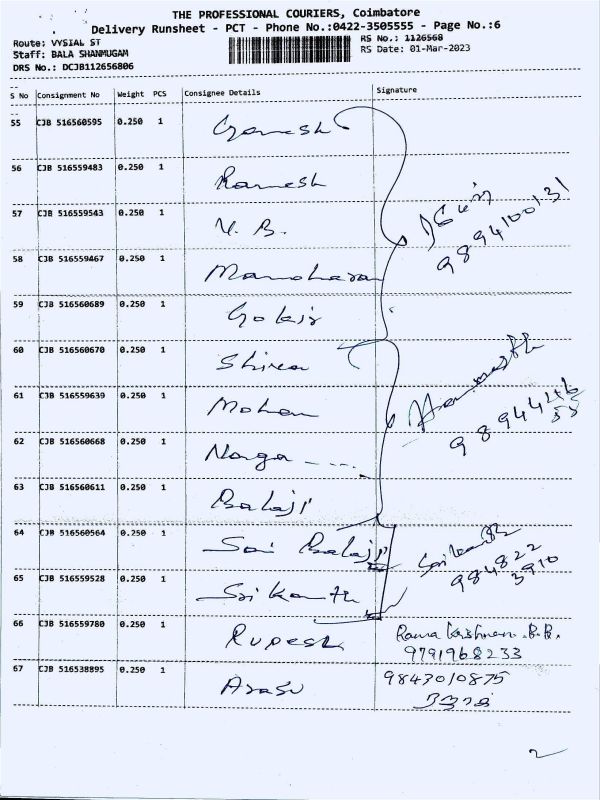 THE PROFESSIONAL COURIERS, Coimbatore
Delivery Runsheet - PCT - Phone No.:0422-3505555 - Page No.:6
Route: VYSIAL ST
RS No.: 1126568
Staff: BALA SHANMUGAM
RS Date: 01-Mar-2023
DRS No.: DCJB112656806
S No Consignment No Weight PCS Consignee Details Signature
55 CJB 516560595 0.250 1 Ganesh
56 CJB 516559483 0.250 1 Ramesh
57 CJB 516559543 0.250 1 V. B.
9894100131
58 CJB 516559467 0.250 1 Manoharan
59 CJB 516560689 0.250 1 Gokir
60 CJB 516560670 0.250 1 Shiren
61 CJB 516559639 0.250 1 Mohan
62 CJB 516560668 0.250 1 Naga ----
63 CJB 516560611 0.250 1 Balaji
64 CJB 516560564 0.250 1 Sai Balaji
Srikanth
984822
3910
65 CJB 516559528 0.250 1 Srikanth
66 CJB 516559780 0.250 1 Rupesh Rama Krishnan. B.B.
9791968233
67 CJB 516538895 0.250 1 Arasu 9843010875
2